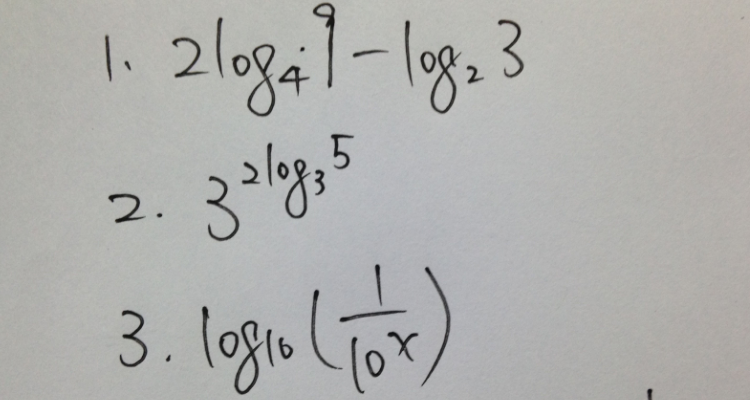 1. 2log₄ 9 - log₂ 3
2. 3^(2log₃ 5)
3. log₁₀ (1/10^x)